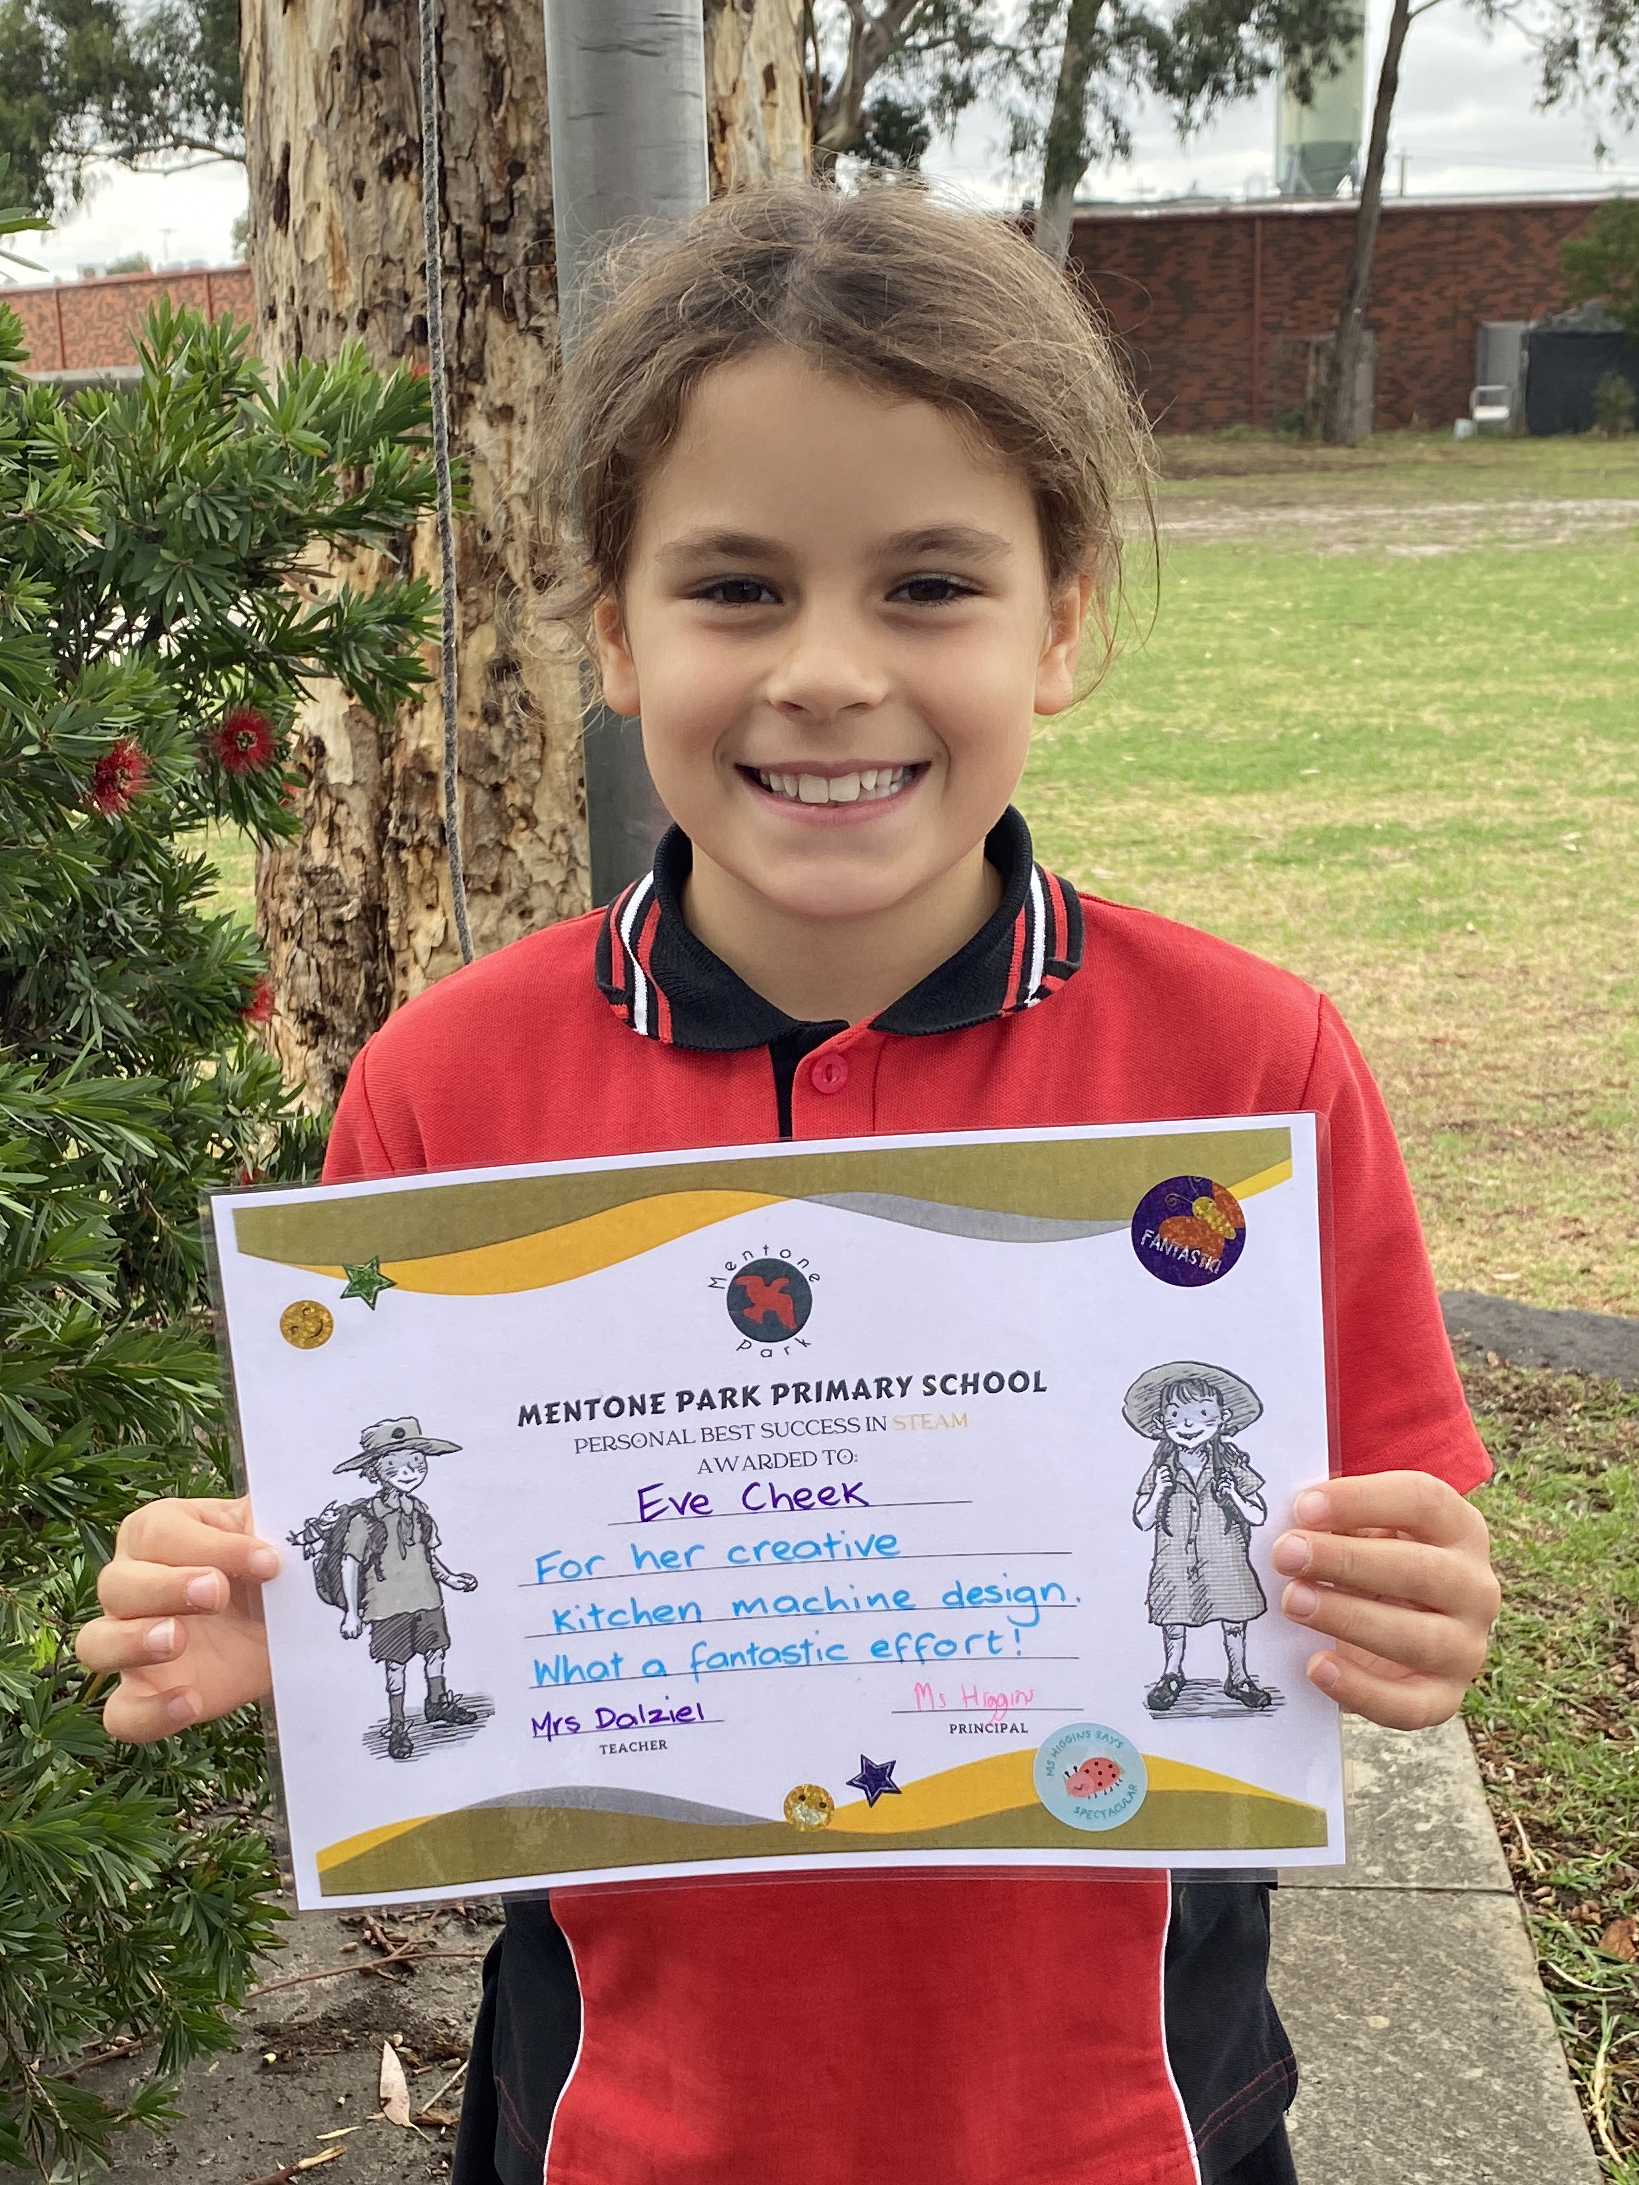 Mentone
Park
FANTASTIC!
MENTONE PARK PRIMARY SCHOOL
PERSONAL BEST SUCCESS IN STEAM
AWARDED TO:
Eve Cheek
For her creative
Kitchen machine design.
What a fantastic effort!
Mrs Dalziel
TEACHER
Ms Higgins
PRINCIPAL
MS HIGGINS SAYS
SPECTACULAR